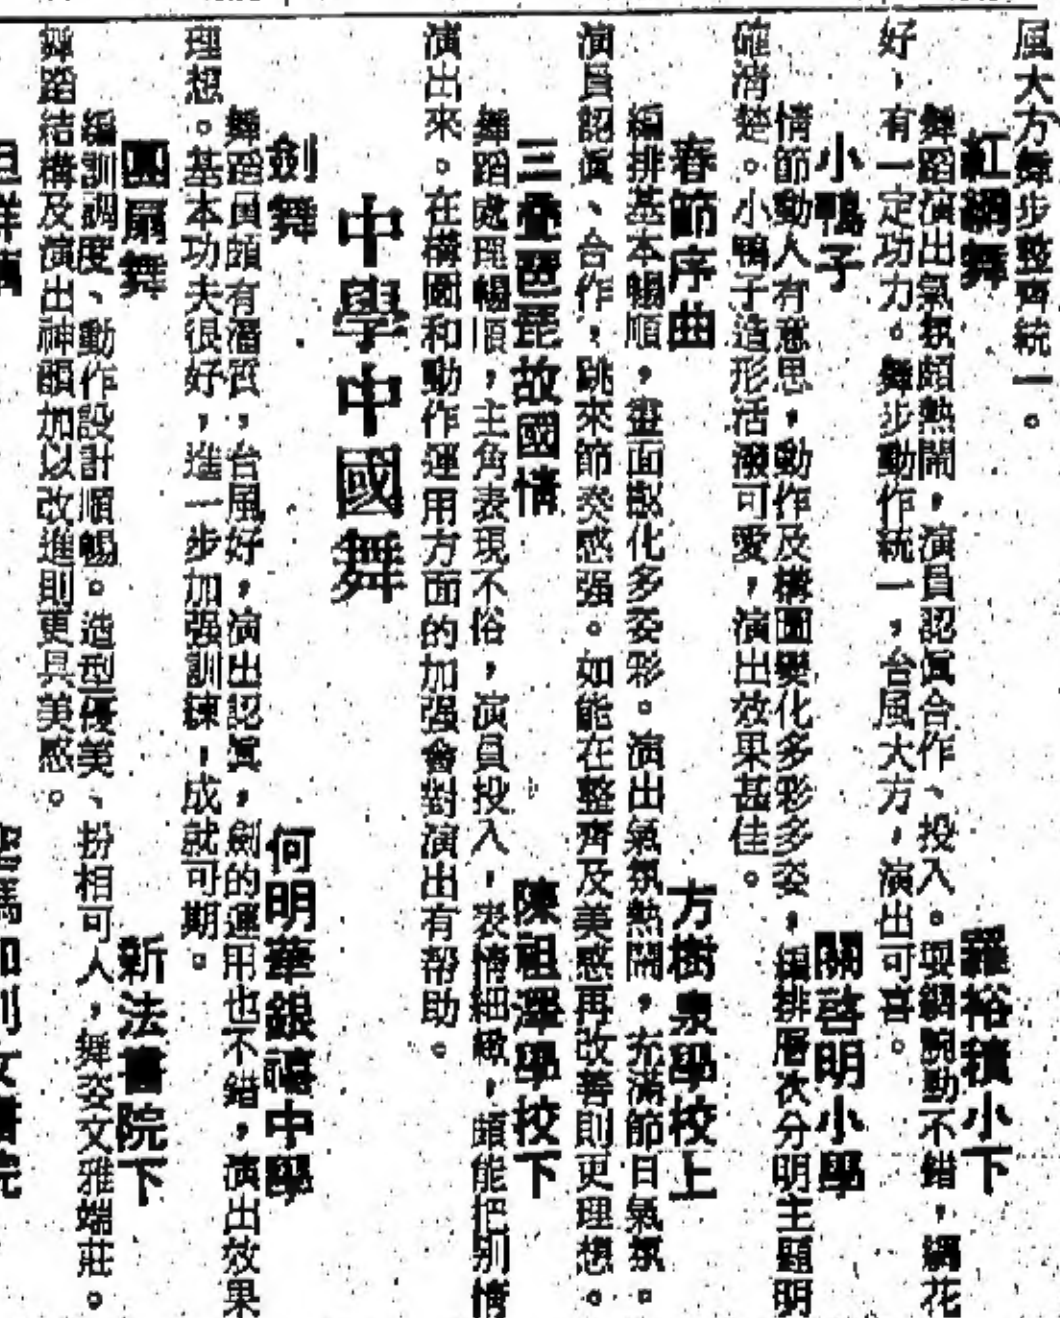 風大方舞步整齊統一。
紅綢舞 羅裕積小下
舞蹈演出氣氛頗熱鬧，演員認眞合作、投入。耍綢腕動不錯，綢花
好，有一定功力。舞步動作統一，台風大方，演出可喜。
小鴨子 關啓明小學
情節動人有意思，動作及構圖變化多彩多姿，編排層次分明主題明
確清楚。小鴨子造形活潑可愛，演出效果甚佳。
春節序曲 方樹泉學校上
編排基本暢順，畫面變化多姿彩。演出氣氛熱鬧，充滿節日氣氛。
演員認眞、合作，跳來節奏感强。如能在整齊及美感再改善則更理想。
三叠琵琶故國情 陳祖澤學校下
舞蹈處理暢順，主角表現不俗，演員投入，表情細緻，頗能把別情
演出來。在構圖和動作運用方面的加强會對演出有帮助。
中學中國舞
劍舞 何明華銀禧中學
舞蹈員頗有潛質，台風好，演出認眞，劍的運用也不錯，演出效果
理想。基本功夫很好，進一步加强訓練，成就可期。
圓扇舞 新法書院下
編訓調度、動作設計順暢。造型優美、扮相可人，舞姿文雅端莊。
舞蹈結構及演出神韻加以改進則更具美感。